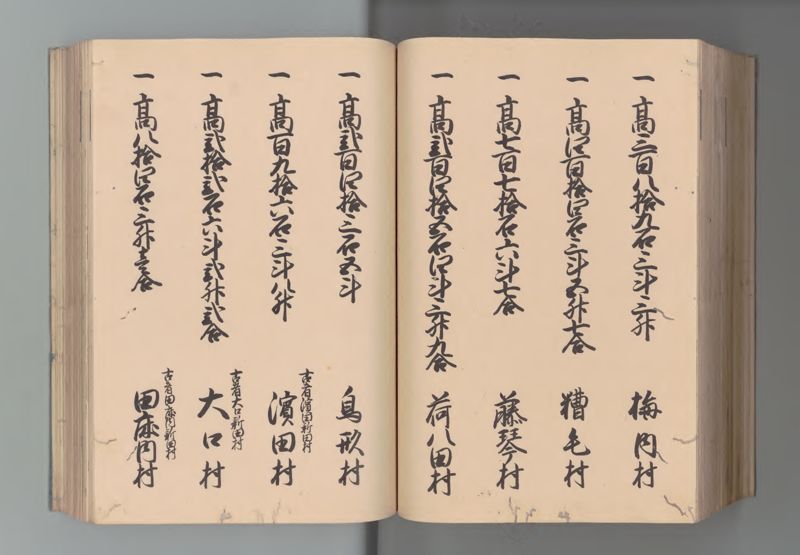 一高三百八拾九石三斗三升 梅内村
一高四百拾四石三斗五升七合 糟毛村
一高七百七拾石六斗七合 藤琴村
一高弐百四拾五石四斗三升九合 荷八田村
一高弐百四拾三石五斗 鳥形村
一高百九拾六石三斗八升 古者濱田新田村 濱田村
一高弐拾弐石六斗弐升弐合 古者大口新田村 大口村
一高八拾四石三升壱合 古者田床内新田村 田床内村